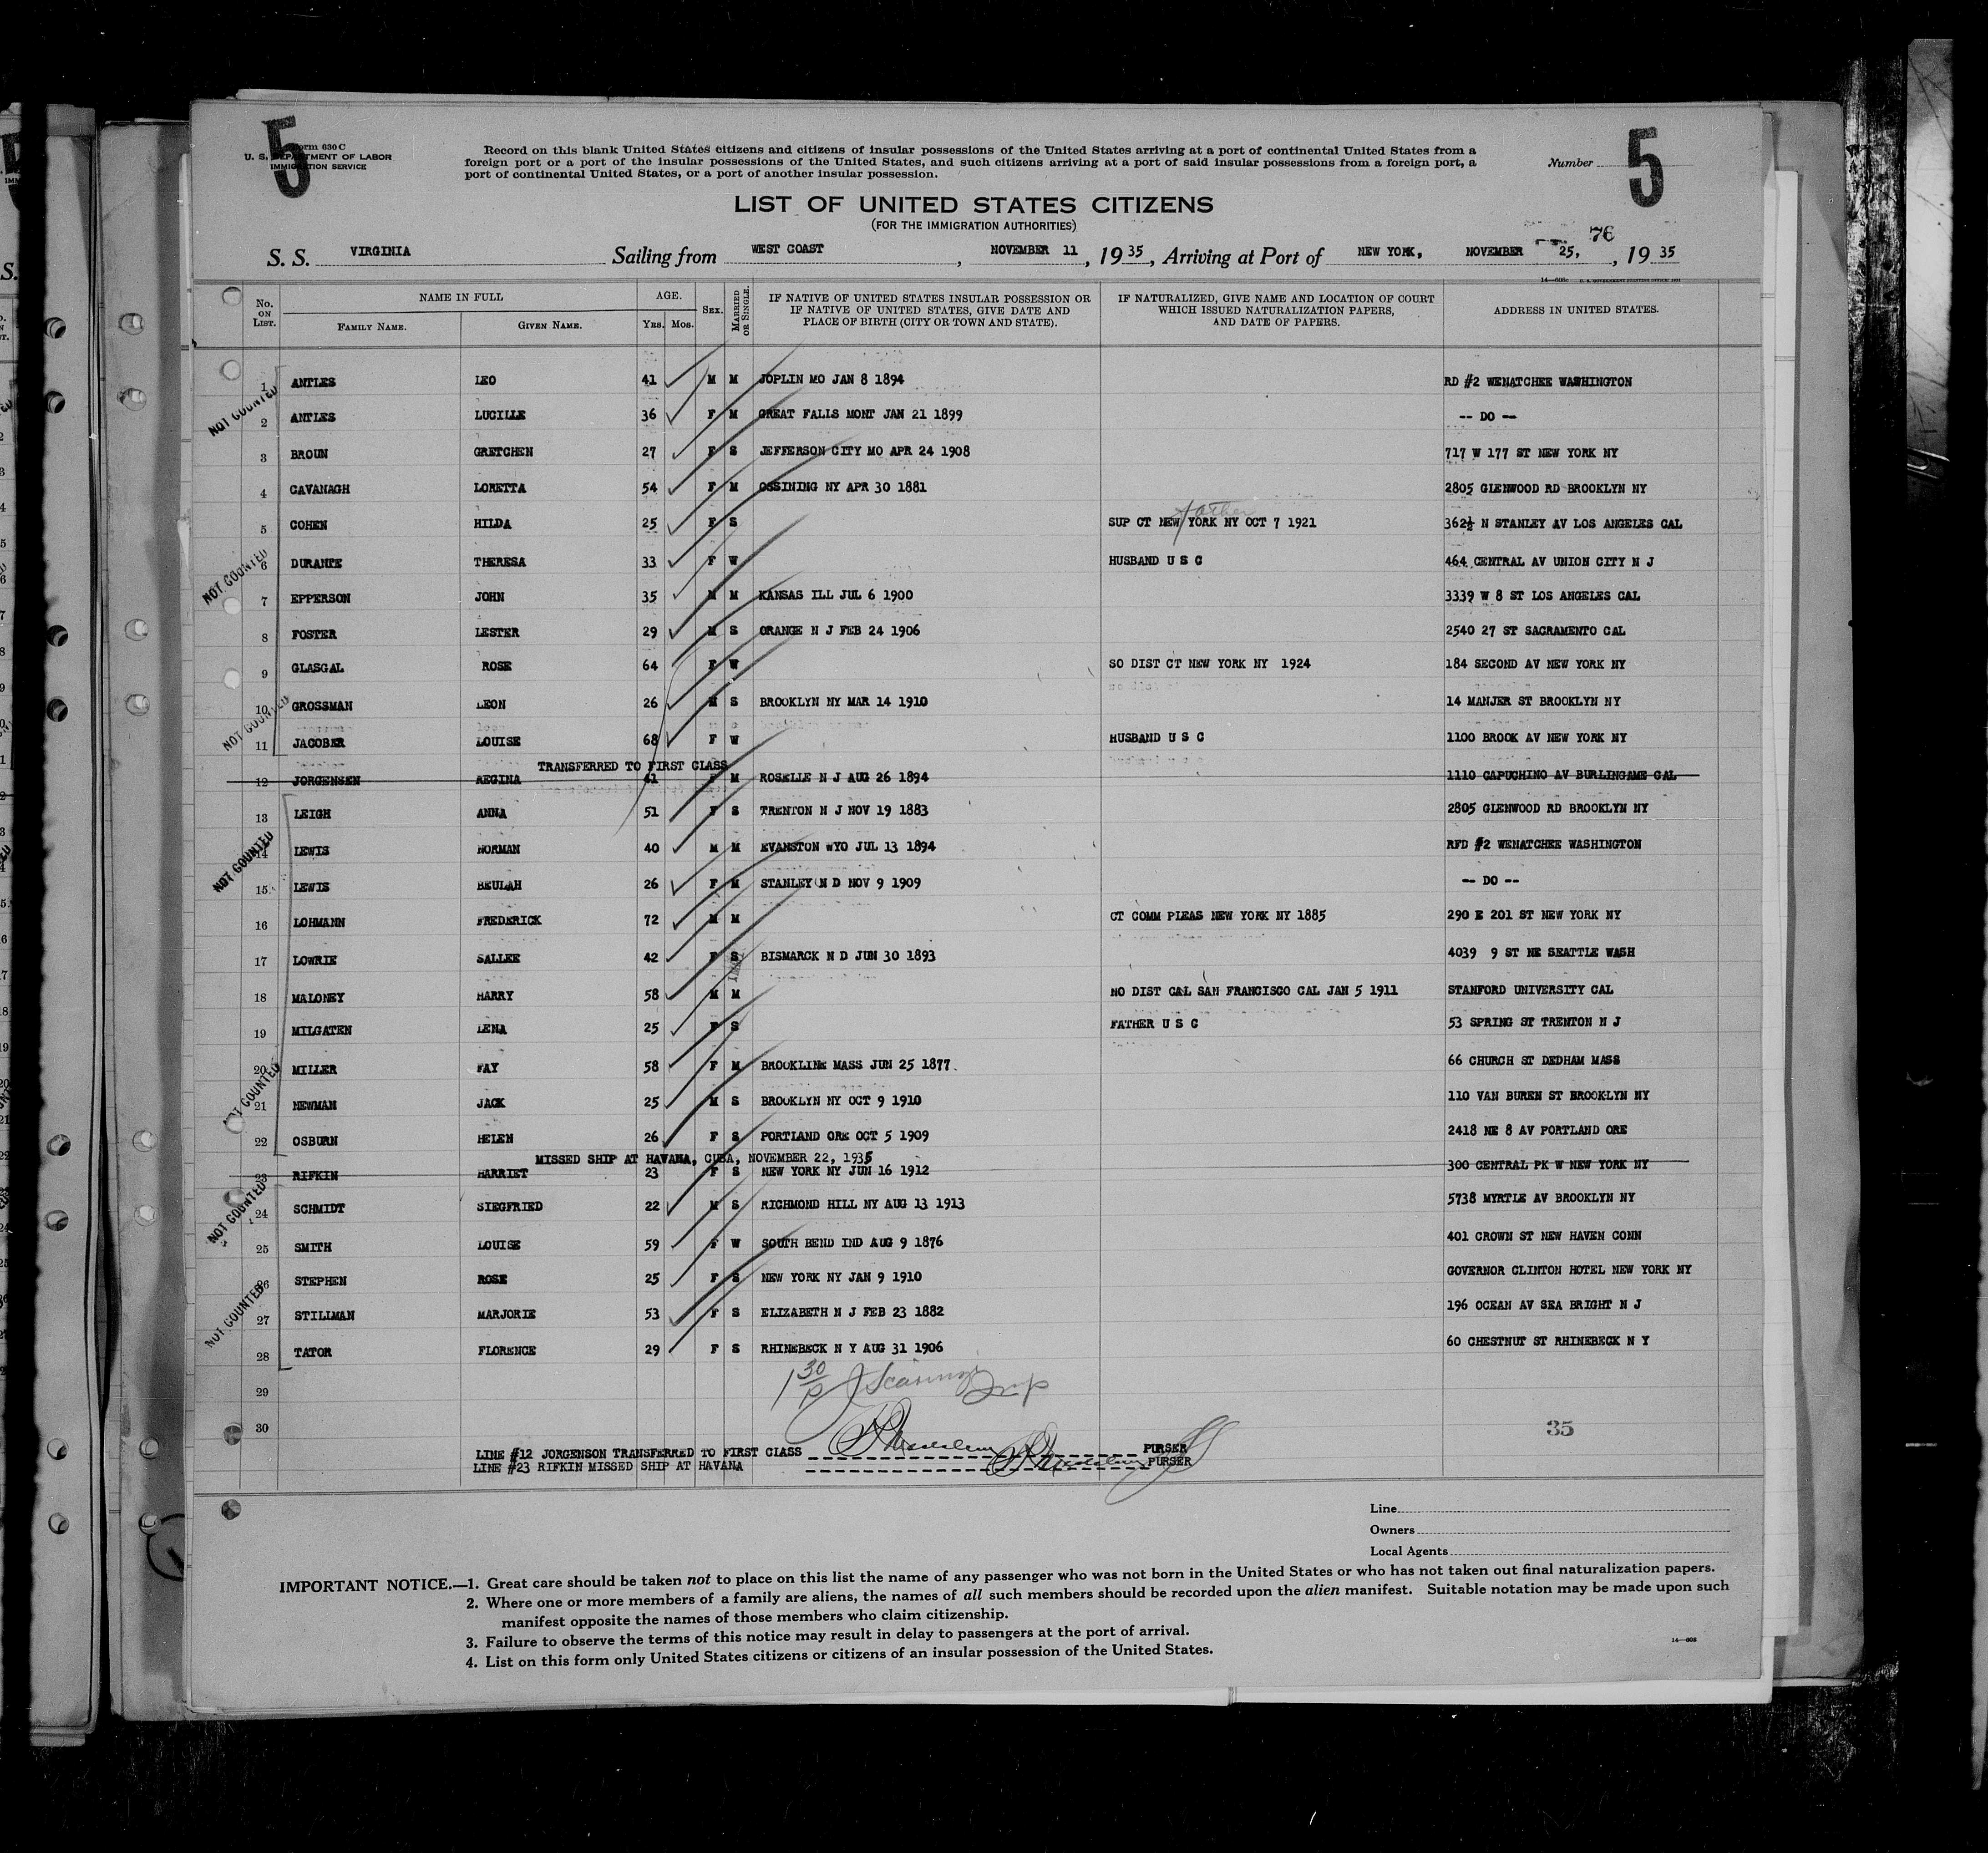 5
Form 630 C
U. S. DEPARTMENT OF LABOR
IMMIGRATION SERVICE
Record on this blank United States citizens and citizens of insular possessions of the United States arriving at a port of continental United States from a
foreign port or a port of the insular possessions of the United States, and such citizens arriving at a port of said insular possessions from a foreign port, a
port of continental United States, or a port of another insular possession.
Number 5
LIST OF UNITED STATES CITIZENS
(FOR THE IMMIGRATION AUTHORITIES)
76
S. S. VIRGINIA Sailing from WEST COAST , NOVEMBER 11 , 19 35 , Arriving at Port of NEW YORK, NOVEMBER 25, , 19 35
No. ON LIST. NAME IN FULL FAMILY NAME. GIVEN NAME. AGE. YRS. MOS. SEX. MARRIED OR SINGLE. IF NATIVE OF UNITED STATES INSULAR POSSESSION OR IF NATIVE OF UNITED STATES, GIVE DATE AND PLACE OF BIRTH (CITY OR TOWN AND STATE). IF NATURALIZED, GIVE NAME AND LOCATION OF COURT WHICH ISSUED NATURALIZATION PAPERS, AND DATE OF PAPERS. ADDRESS IN UNITED STATES.
1 ANTLES LEO 41 M M JOPLIN MO JAN 8 1894 RD #2 WENATCHEE WASHINGTON
NOT COUNTED
2 ANTLES LUCILLE 36 F M GREAT FALLS MONT JAN 21 1899 -- DO --
3 BROUN GRETCHEN 27 F S JEFFERSON CITY MO APR 24 1908 717 W 177 ST NEW YORK NY
4 CAVANAGH LORETTA 54 F M OSSINING NY APR 30 1881 2805 GLENWOOD RD BROOKLYN NY
father
5 COHEN HILDA 25 F S SUP CT NEW YORK NY OCT 7 1921 362½ N STANLEY AV LOS ANGELES CAL
NOT COUNTED
6 DURANTE THERESA 33 F W HUSBAND U S C 464 CENTRAL AV UNION CITY N J
7 EPPERSON JOHN 35 M M KANSAS ILL JUL 6 1900 3339 W 8 ST LOS ANGELES CAL
8 FOSTER LESTER 29 M S ORANGE N J FEB 24 1906 2540 27 ST SACRAMENTO CAL
9 GLASGAL ROSE 64 F W SO DIST CT NEW YORK NY 1924 184 SECOND AV NEW YORK NY
NOT COUNTED
10 GROSSMAN LEON 26 M S BROOKLYN NY MAR 14 1910 14 MANJER ST BROOKLYN NY
11 JACOBER LOUISE 68 F W HUSBAND U S C 1100 BROOK AV NEW YORK NY
TRANSFERRED TO FIRST CLASS
12 JORGENSEN REGINA 41 F M ROSELLE N J AUG 26 1894 1110 CAPUCHINO AV BURLINGAME CAL
13 LEIGH ANNA 51 F S TRENTON N J NOV 19 1883 2805 GLENWOOD RD BROOKLYN NY
NOT COUNTED
14 LEWIS NORMAN 40 M M EVANSTON WYO JUL 13 1894 RFD #2 WENATCHEE WASHINGTON
15 LEWIS BEULAH 26 F M STANLEY N D NOV 9 1909 -- DO --
16 LOHMANN FREDERICK 72 M M CT COMM PLEAS NEW YORK NY 1885 290 E 201 ST NEW YORK NY
17 LOWRIE SALLEE 42 F S BISMARCK N D JUN 30 1893 4039 9 ST NE SEATTLE WASH
18 MALONEY HARRY 58 M M NO DIST CAL SAN FRANCISCO CAL JAN 5 1911 STANFORD UNIVERSITY CAL
19 MILGATEN LENA 25 F S FATHER U S C 53 SPRING ST TRENTON N J
20 MILLER FAY 58 F M BROOKLINE MASS JUN 25 1877 66 CHURCH ST DEDHAM MASS
NOT COUNTED
21 NEWMAN JACK 25 M S BROOKLYN NY OCT 9 1910 110 VAN BUREN ST BROOKLYN NY
22 OSBURN HELEN 26 F S PORTLAND ORE OCT 5 1909 2418 NE 8 AV PORTLAND ORE
MISSED SHIP AT HAVANA, CUBA, NOVEMBER 22, 1935
23 RIFKIN HARRIET 23 F S NEW YORK NY JUN 16 1912 300 CENTRAL PK W NEW YORK NY
NOT COUNTED
24 SCHMIDT SIEGFRIED 22 M S RICHMOND HILL NY AUG 13 1913 5738 MYRTLE AV BROOKLYN NY
25 SMITH LOUISE 59 F W SOUTH BEND IND AUG 9 1876 401 CROWN ST NEW HAVEN CONN
26 STEPHEN ROSE 25 F S NEW YORK NY JAN 9 1910 GOVERNOR CLINTON HOTEL NEW YORK NY
NOT COUNTED
27 STILLMAN MARJORIE 53 F S ELIZABETH N J FEB 23 1882 196 OCEAN AV SEA BRIGHT N J
28 TATOR FLORENCE 29 F S RHINEBECK N Y AUG 31 1906 60 CHESTNUT ST RHINEBECK N Y
29
1 30/P
30
35
LINE #12 JORGENSON TRANSFERRED TO FIRST CLASS PURSER
LINE #23 RIFKIN MISSED SHIP AT HAVANA PURSER
Line
Owners
Local Agents
IMPORTANT NOTICE.—1. Great care should be taken not to place on this list the name of any passenger who was not born in the United States or who has not taken out final naturalization papers.
2. Where one or more members of a family are aliens, the names of all such members should be recorded upon the alien manifest. Suitable notation may be made upon such
manifest opposite the names of those members who claim citizenship.
3. Failure to observe the terms of this notice may result in delay to passengers at the port of arrival.
4. List on this form only United States citizens or citizens of an insular possession of the United States.